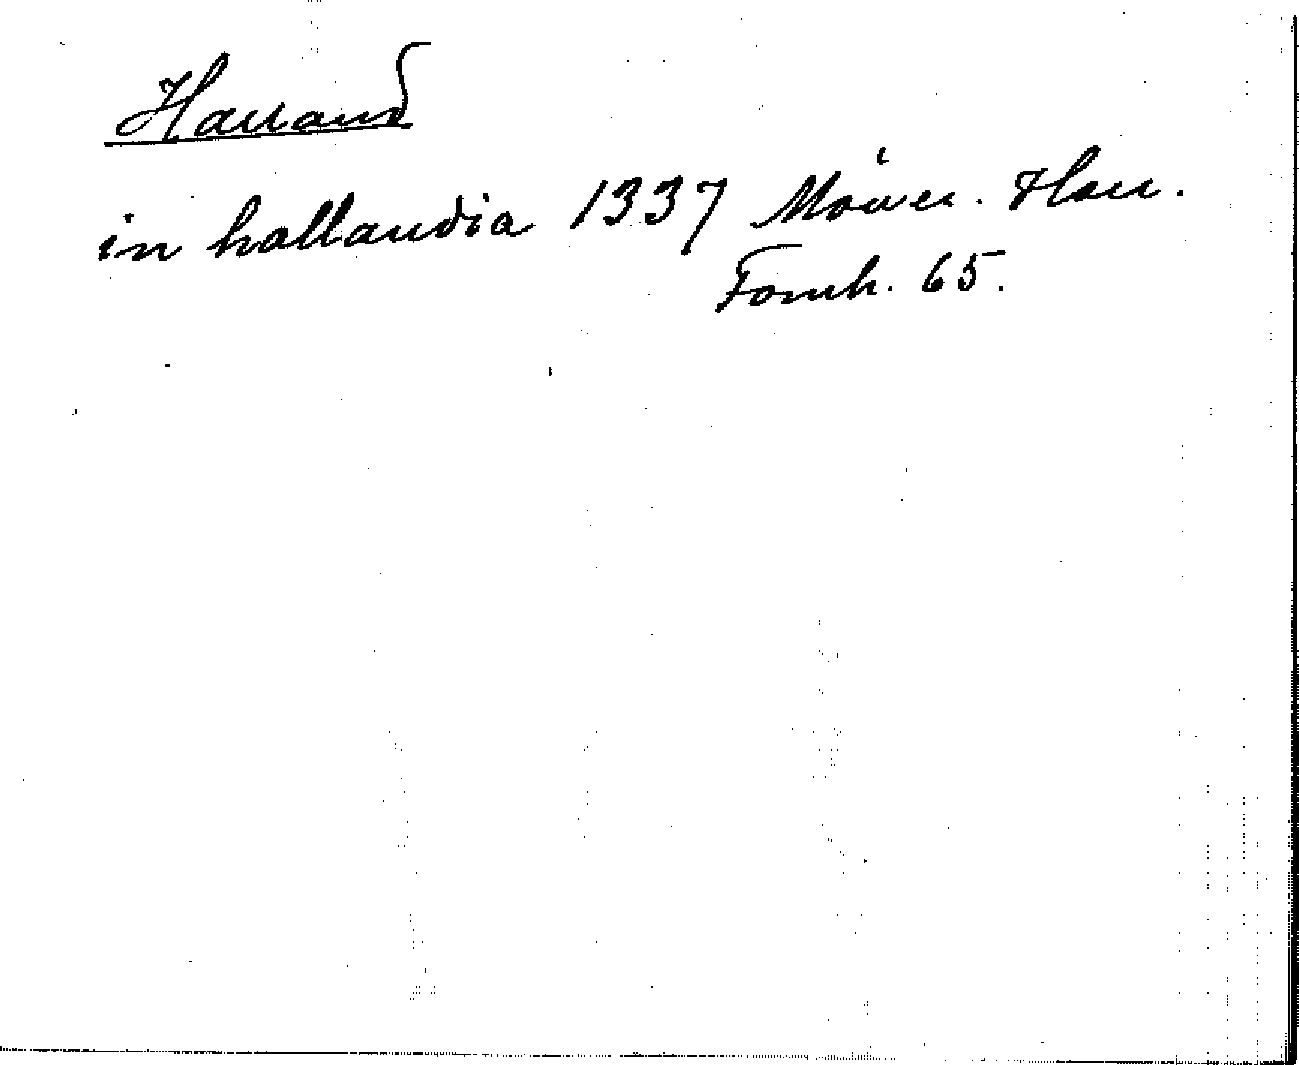 Halland
in hallandia 1337 Möller. Hall.
Fornh. 65.